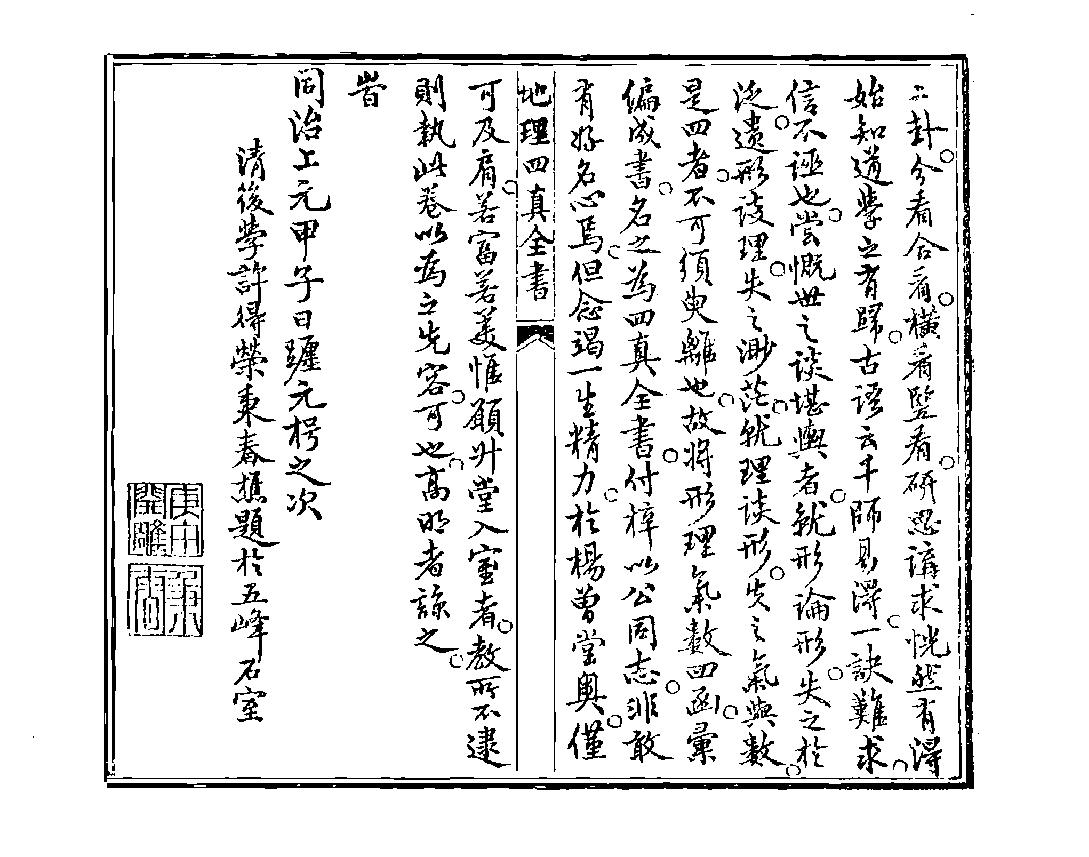 二卦分看合看橫看豎看研思講求恍然有得
始知道學之有歸古語云千師易得一訣難求
信不誣也嘗慨世之談堪輿者就形論形失之於
泛遺形談理失之渺茫就理談形失之氣與數
是四者不可須臾離也故將形理氣數四函彙
編成書名之為四真全書付梓以公同志非敢
有好名心焉但念竭一生精力於楊曾堂奧僅
地理四真全書
可及肩若富若美惟願升堂入室者教所不逮
則執此卷以為之先容可也高明者諒之
時
同治上元甲子日躔元枵之次
清後學許得榮秉春樵題於五峰石室